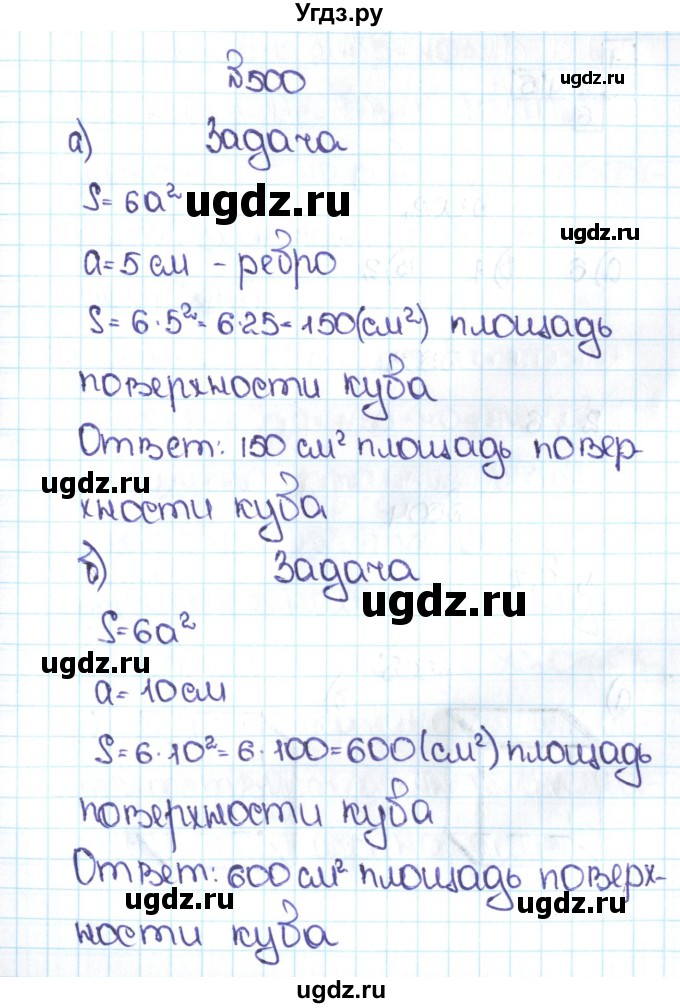 Угдз.ру
№500
ugdz.ru
а) Задача
S=6а² ugdz.ru
ugdz.ru
а=5см - ребро
S=6·5²=6·25=150(см²) площадь
поверхности куба
Ответ: 150 см² площадь повер-
ugdz.ru
хности куба
б) Задача
ugdz.ru
S=6а²
ugdz.ru
а=10см
S=6·10²=6·100=600(см²) площадь
поверхности куба
Ответ: 600 см² площадь поверх-
ugdz.ru ugdz.ru
ности куба
ugdz.ru